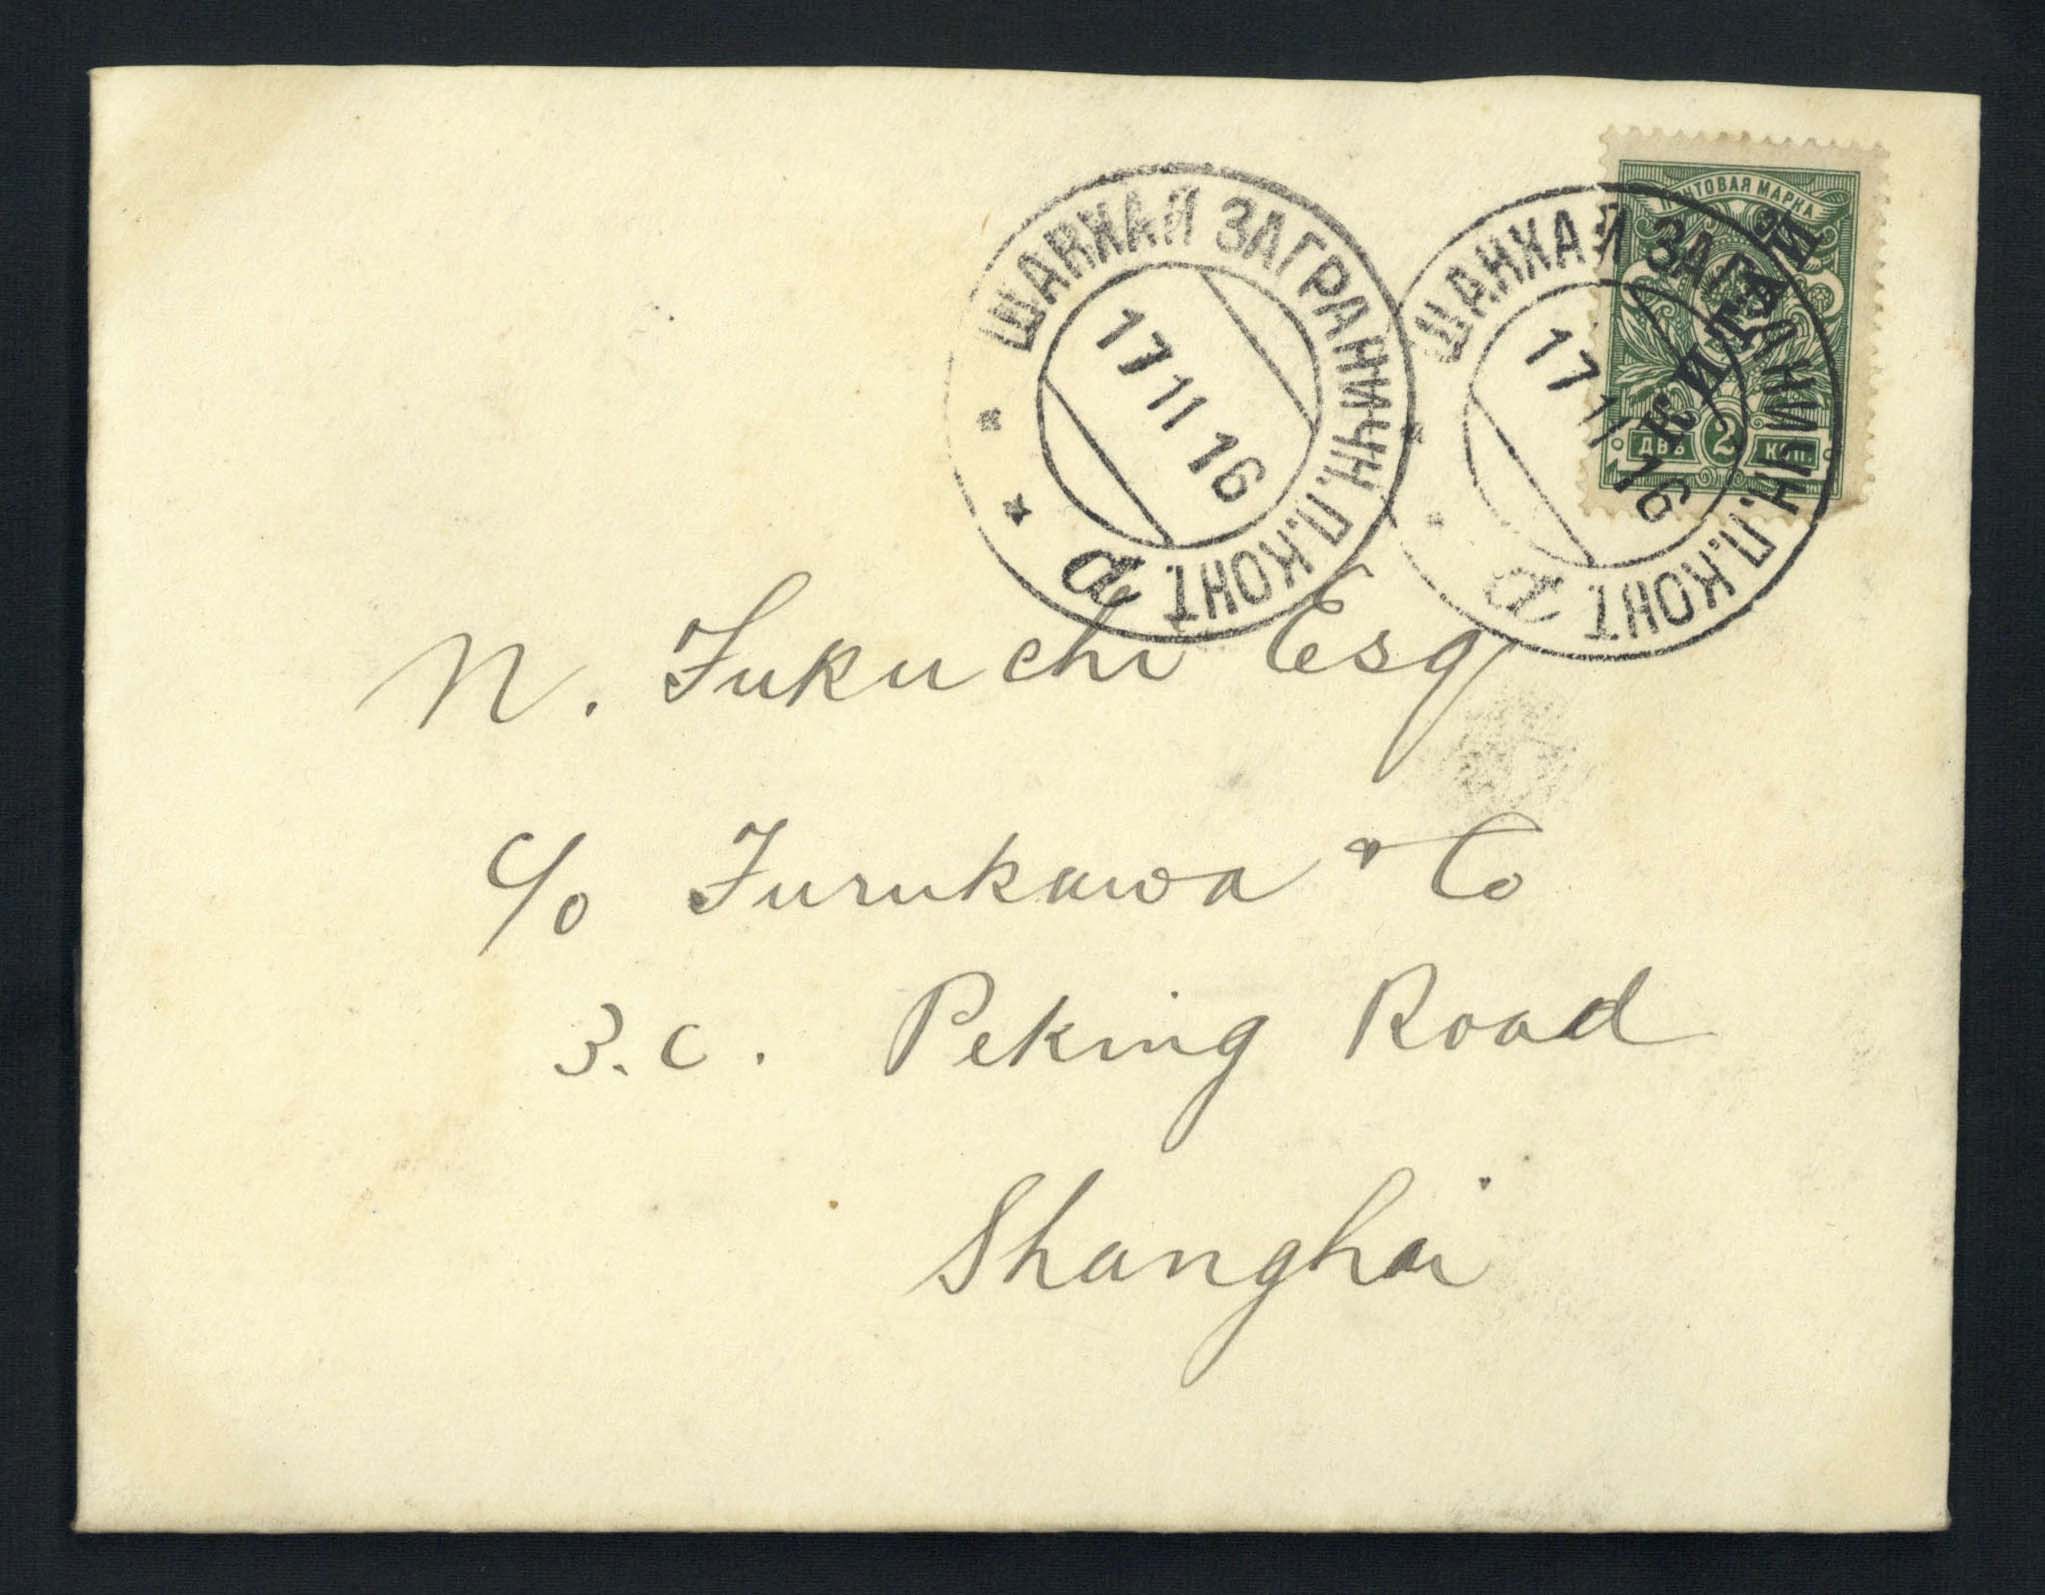 ШАНХАЙ ЗАГРАНИЧН. П. КОНТ
a
17 11 16
ШАНХАЙ ЗАГРАНИЧН. П. КОНТ
a
17 11 16
ПОЧТОВАЯ МАРКА
КИТАЙ
ДВѢ 2 КОП.
N. Fukuchi Esq
c/o Furukawa & Co
3.C. Peking Road
Shanghai